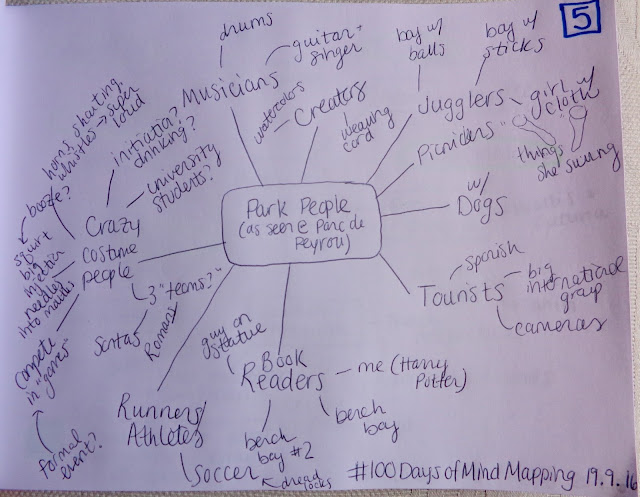 5
drums
guitar +
singer
Musicians
boy w/
balls
boy w/
sticks
Jugglers
girl w/
cloth
things
she swung
watercolors
Creators
weaving
cord
Picnickers
w/
Dogs
Spanish
Tourists
big
international
group
cameras
Park People
(as seen @ Parc de
Peyrou)
horns, shouting
whistles → super
loud
initiation?
drinking?
university
students?
booze?
squirt
big
injection
needles
into mouths
Crazy
costume
people
3 "teams?"
Santas
Romans
compete
in "games"
formal
event?
guy on
statue
Book
Readers
me (Harry
Potter)
bench
boy
bench
boy #2
dread
locks
Runners/
Athletes
soccer
#100DaysofMindMapping 19.9.16